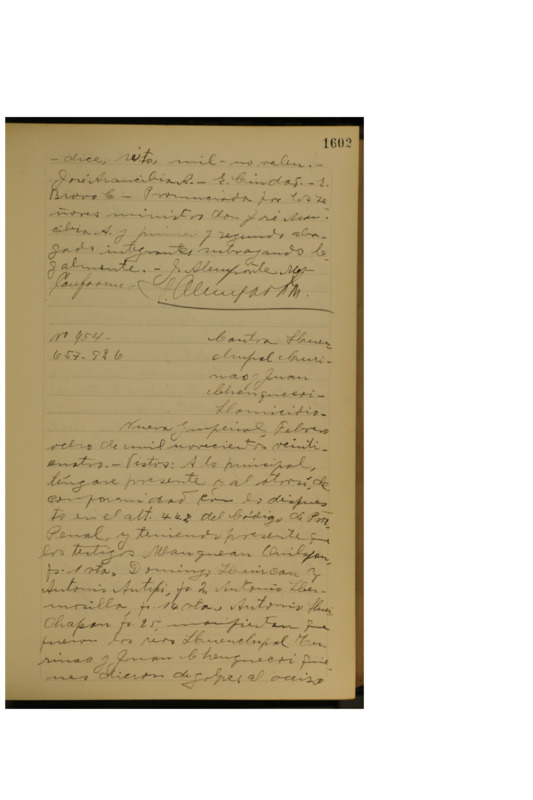 1602
- dice, vto, mil - no valen. -
José Arancibia A. - E. - E.
Bravo C - Pronunciada por los se-
ñores ministros don José Aran-
cibia A. y primer y segundo abo-
gado integrantes subrogando le-
galmente. - J. Alemparte
Conforme. -
No 954 -
657-926
Contra Huen-
chupal Curi-
nao y Juan
Chenquecoi -
Homicidio -
Nueva Imperial, Febrero
ocho de mil novecientos veinti-
cuatro. - Vistos: A lo principal,
téngase presente y al otrosi, de
conformidad con lo dispues
to en el art. 442 del Código de Pro.
Penal, y teniendo presente que
los testigos Manquean
fs. 1 vta, Domingo Huircan y
Antonio fs. 2, Antonio Her-
mosilla, fs. 16 vta, Antonio
fs. 25, manifiestan que
fueron los reos Huenchupal Cu
rinao y Juan Chenquecoi quie
nes dieron de golpes al occiso